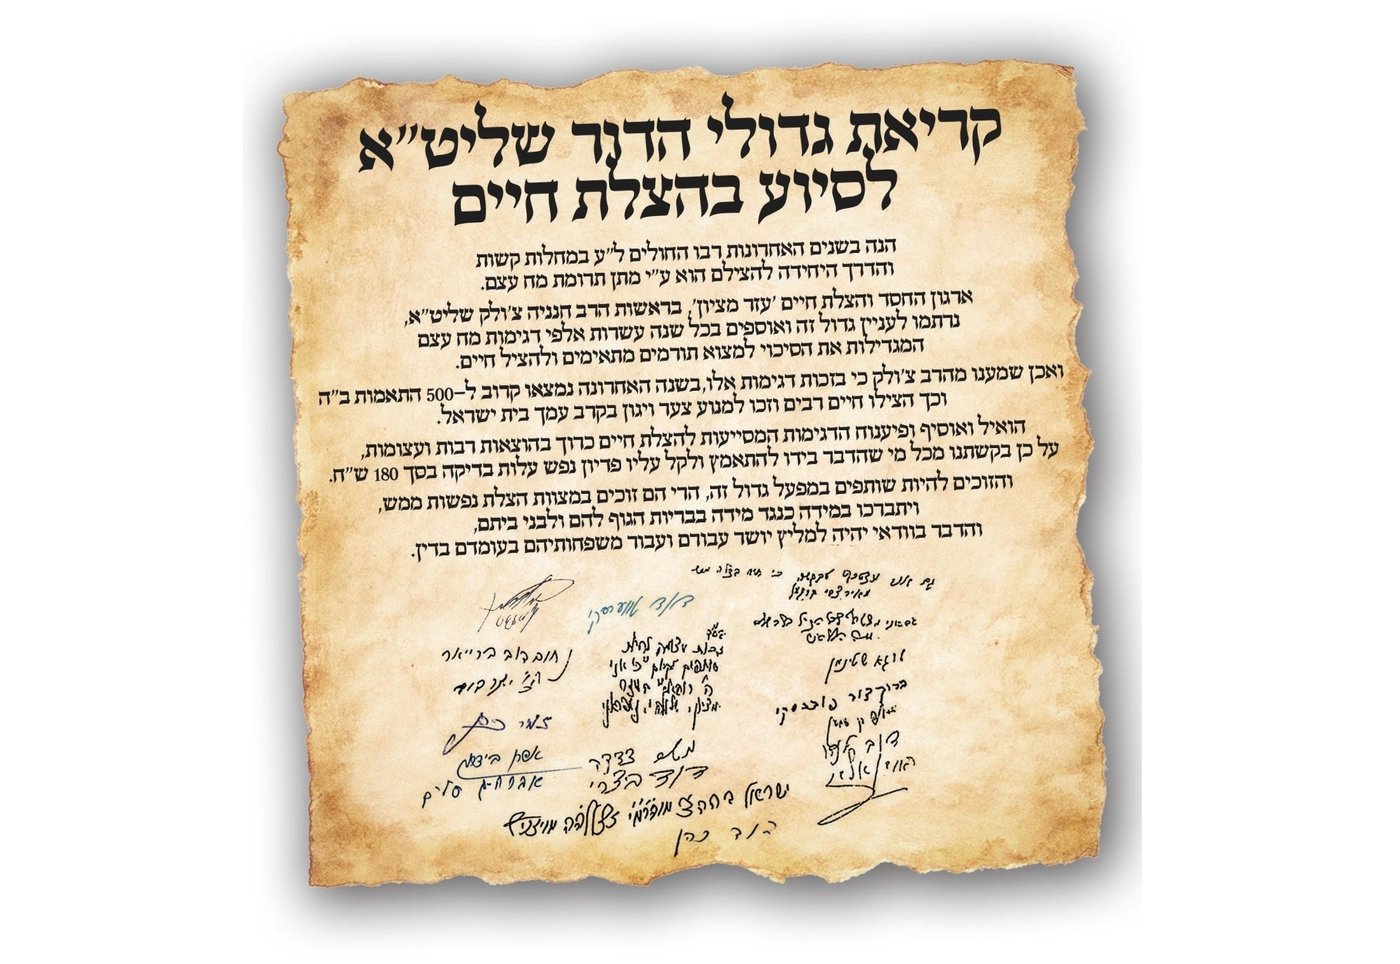 קריאת גדולי הדור שליט"א
לסיוע בהצלת חיים
הנה בשנים האחרונות רבו החולים ל"ע במחלות קשות
והדרך היחידה להצילם הוא ע"י מתן תרומת מח עצם.
ארגון החסד והצלת חיים 'עזר מציון', בראשות הרב חנניה צ'ולק שליט"א,
נרתמו לעניין גדול זה ואוספים בכל שנה עשרות אלפי דגימות מח עצם
המגדילות את הסיכוי למצוא תורמים מתאימים ולהציל חיים.
ואכן שמענו מהרב צ'ולק כי בזכות דגימות אלו, בשנה האחרונה נמצאו קרוב ל-500 התאמות ב"ה
וכך הצילו חיים רבים וזכו למנוע צער ויגון בקרב עמך בית ישראל.
הואיל ואוסיף ופיענוח הדגימות המסייעות להצלת חיים כרוך בהוצאות רבות ועצומות,
על כן בקשתנו מכל מי שהדבר בידו להתאמץ ולקל עליו פדיון נפש עלות בדיקה בסך 180 ש"ח.
והזוכים להיות שותפים במפעל גדול זה, הרי הם זוכים במצוות הצלת נפשות ממש,
ויתברכו במידה כנגד מידה בבריות הגוף להם ולבני ביתם,
והדבר בוודאי יהיה למליץ יושר עבודם ועבוד משפחותיהם בעומדם בדין.
דוד טווערסקי
שטינמן
ברוך דוב פוברסקי
דוב
דוד
ישראל
דוד כהן